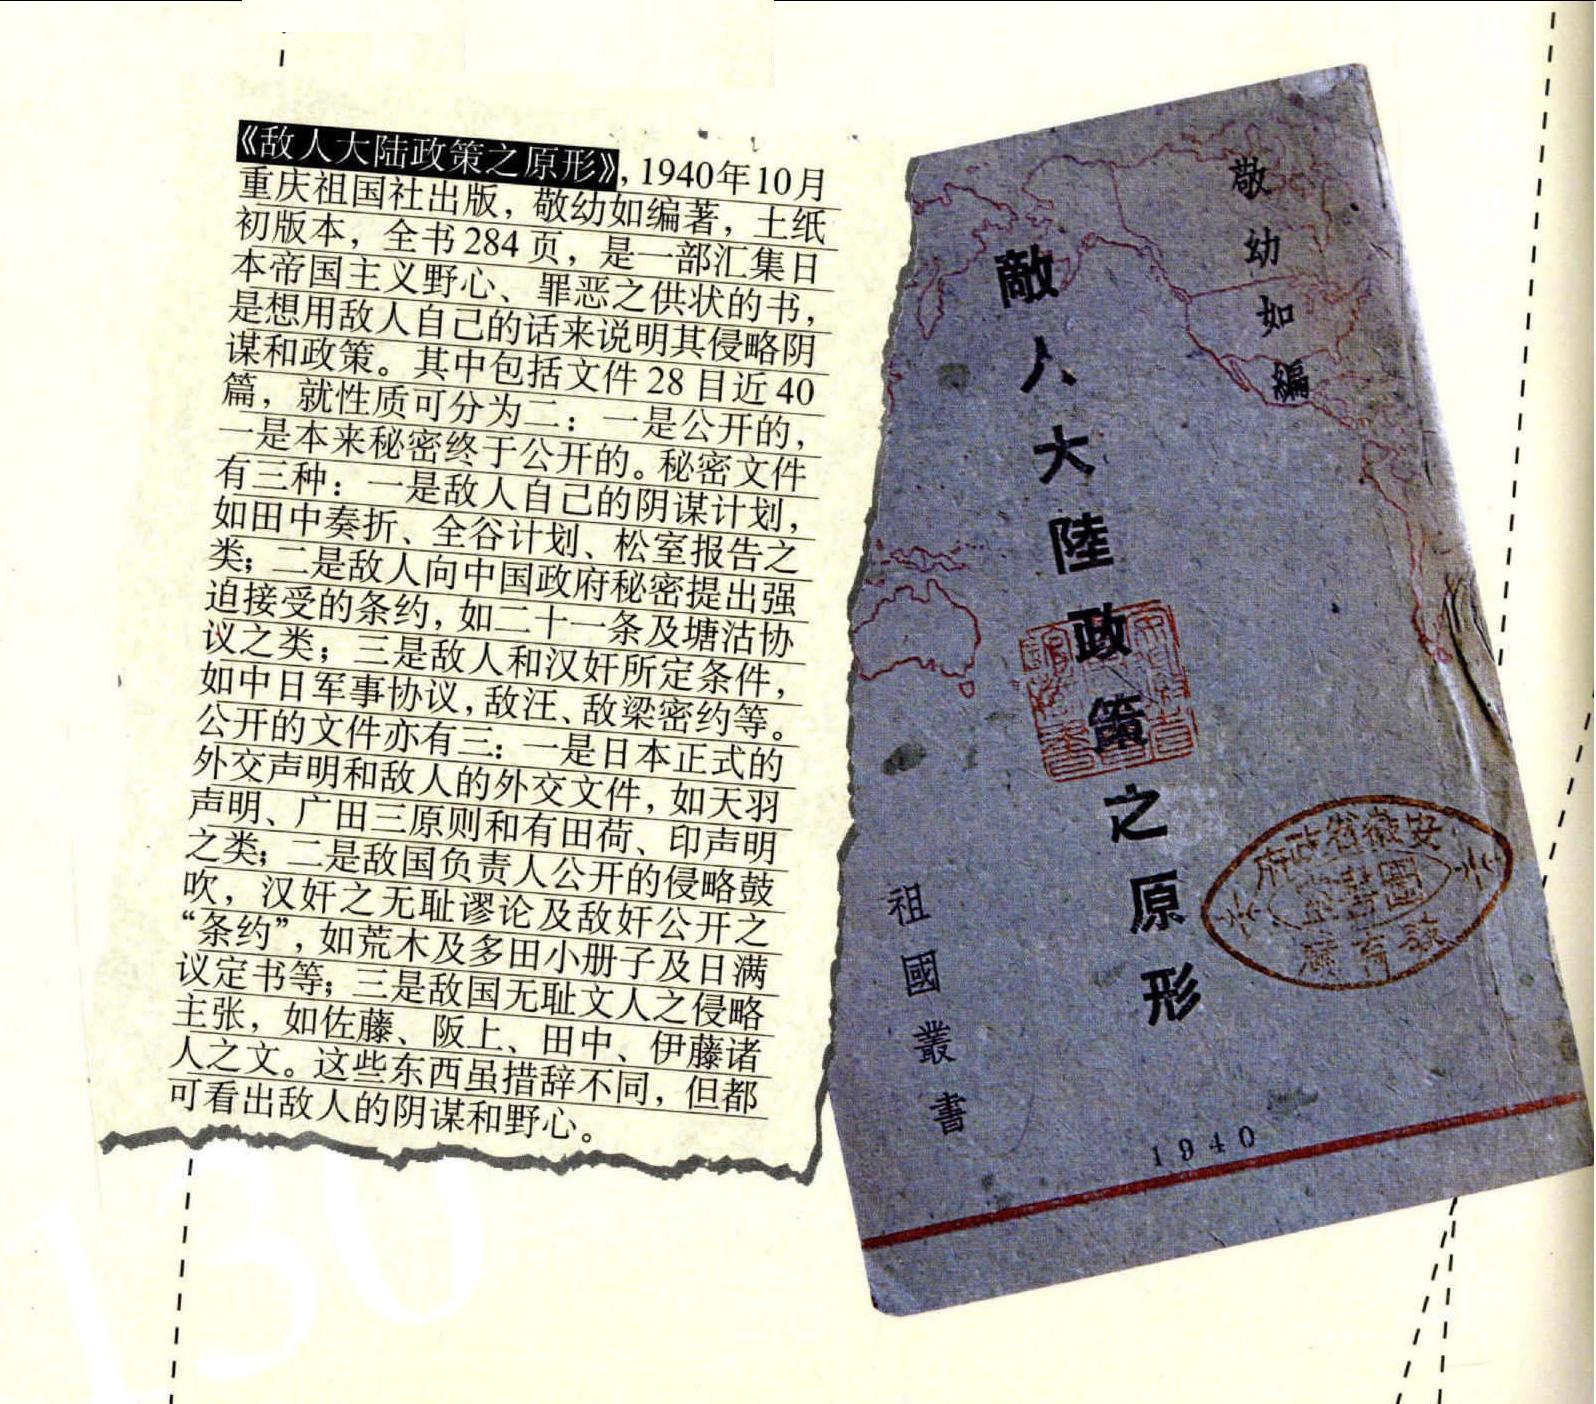 《敌人大陆政策之原形》，1940年10月
重庆祖国社出版，敬幼如编著，土纸
初版本，全书284页，是一部汇集日
本帝国主义野心、罪恶之供状的书，
是想用敌人自己的话来说明其侵略阴
谋和政策。其中包括文件28目近40
篇，就性质可分为二：一是公开的，
一是本来秘密终于公开的。秘密文件
有三种：一是敌人自己的阴谋计划，
如田中奏折、全谷计划、松室报告之
类；二是敌人向中国政府秘密提出强
迫接受的条约，如二十一条及塘沽协
议之类；三是敌人和汉奸所定条件，
如中日军事协议，敌汪、敌梁密约等。
公开的文件亦有三：一是日本正式的
外交声明和敌人的外交文件，如天羽
声明、广田三原则和有田荷、印声明
之类；二是敌国负责人公开的侵略鼓
吹，汉奸之无耻谬论及敌奸公开之
“条约”，如荒木及多田小册子及日满
议定书等；三是敌国无耻文人之侵略
主张，如佐藤、阪上、田中、伊藤诸
人之文。这些东西虽措辞不同，但都
可看出敌人的阴谋和野心。
130
敬幼如編
敵人大陸政策之原形
祖國叢書
1940
府政省徽安
圖書